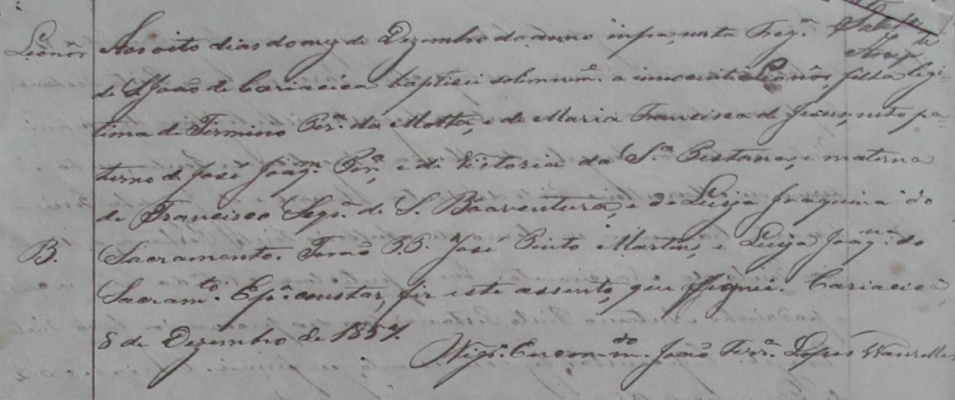 Leonôr
Aos oito dias do mez de Dezembro do anno infra, nesta Freg.ª
de S. João de Cariacica baptisei solemnem.e a innocente Leonôr, filha legi-
tima de Firmino Per.ª da Motta, e de Maria Francisca de Jesus, neto pa-
terno de José Joaq.m Per.ª, e de Victoria da S.ª Pestana, e materna
de Francisco de S. Boaventura, e de Luiza Joaquina do
B. Sacramento. Forão P.P. José Pinto Martins, e Luiza Joaq.na do
Sacram.to E p.ª constar, fiz este assento, que assignei. Cariacica
8 de Dezembro de 1857.
Vig.º Encom.do João Ferr.ª Lopes